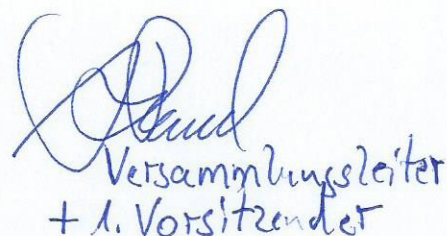 Versammlungsleiter
+ 1. Vorsitzender